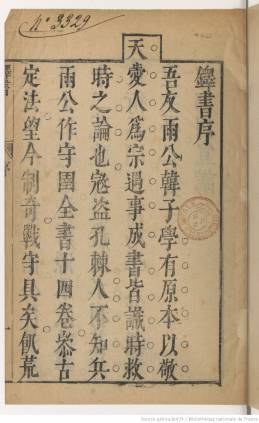 N° 3329
鐸書序
吾友雨公韓子學有原本以敬
天愛人爲宗遇事成書皆識時救
時之論也寇盜孔棘人不知兵
雨公作守圉全書十四卷叅古
定法望今制奇戰守具矣飢荒
Source gallica.bnf.fr / Bibliothèque nationale de France